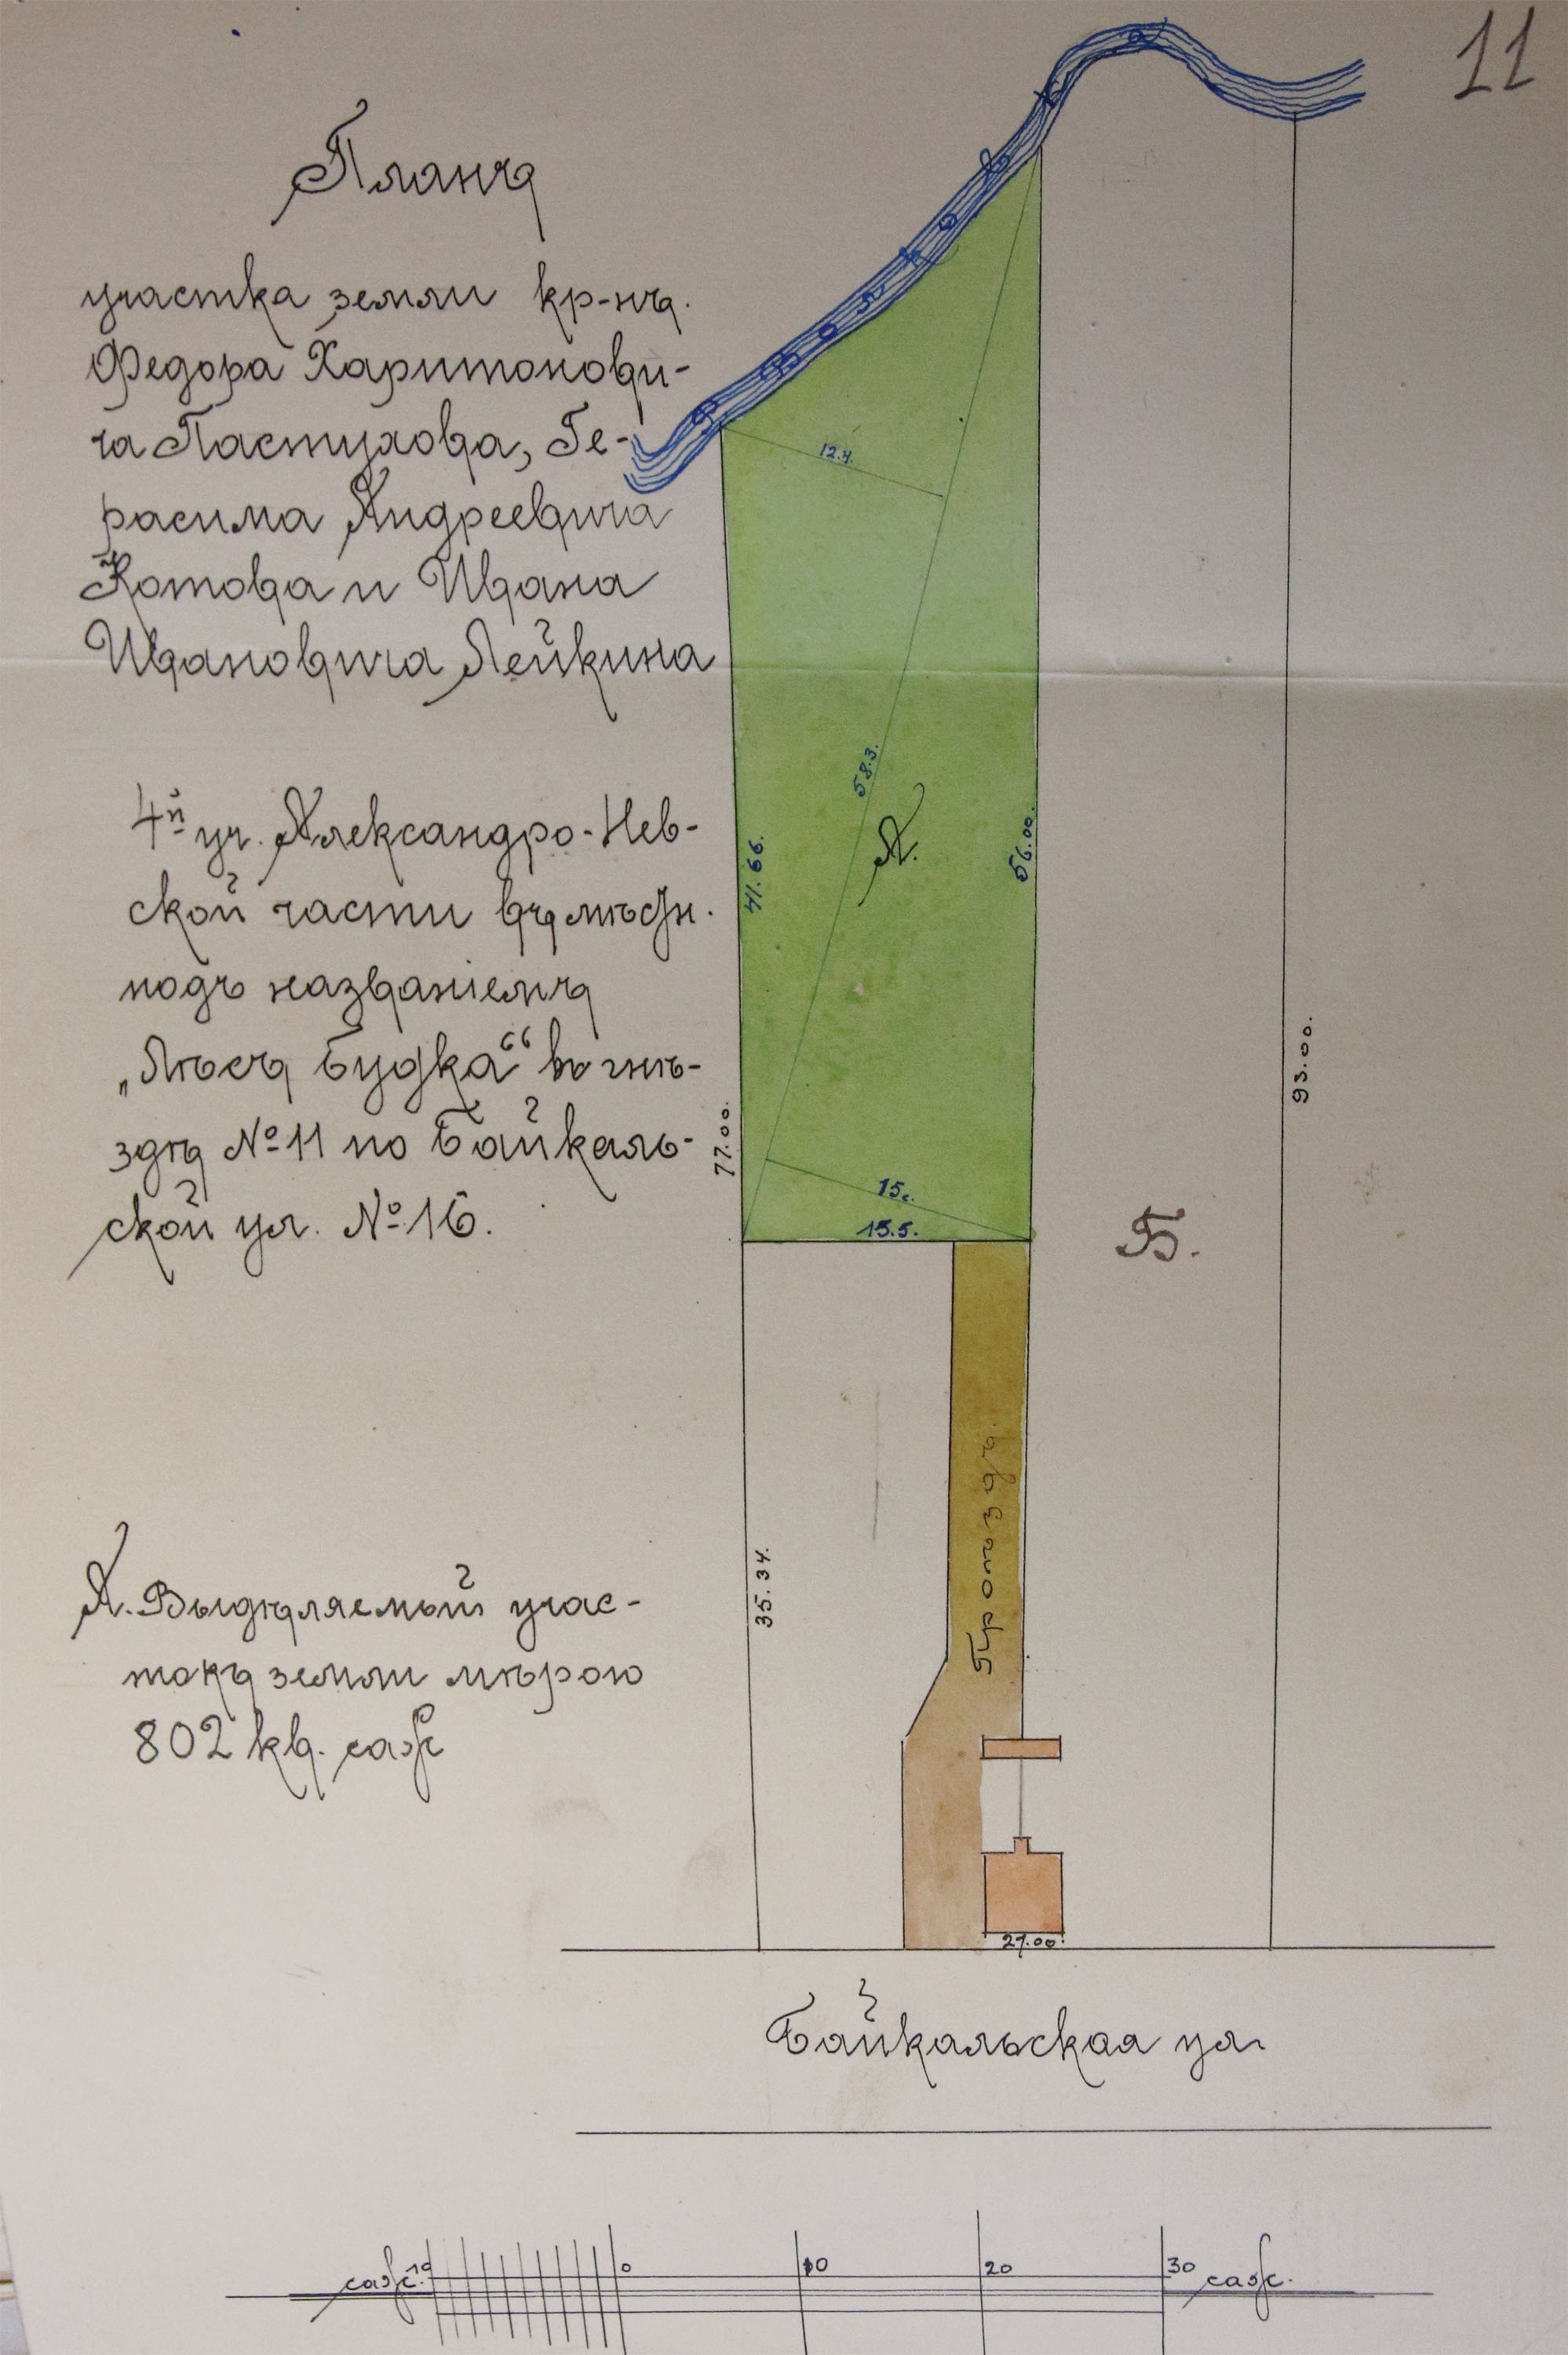 11
Планъ
участка земли кр-нъ.
Федора Харитонови-
ча Пастухова, Ге-
расима Андреевича
Котова и Ивана
Ивановича Лейкина
4й уч. Александро-Нев-
ской части въ мѣстн.
подъ названіемъ
„Лѣсъ Будка“ въ гнѣ-
здѣ № 11 по Байкаль-
ской ул. № 16.
А. Выдѣляемый учас-
токъ земли мѣрою
802 кв. саж
12.4.
58.3.
А.
41.66.
56.00.
77.00.
93.00.
15 с.
15.5.
Б.
Проѣздъ.
35.34.
27.00.
Байкальская ул.
саж. 10 0 10 20 30 саж.